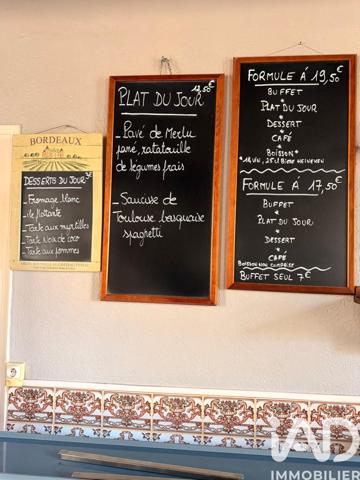 BORDEAUX
DESSERTS DU JOUR 3€
- Fromage blanc
- île flottante
- Tarte aux myrtilles
- Tarte Noix de coco
- Tarte aux pommes
12,50€
PLAT DU JOUR
- Pavé de Merlu
pané, ratatouille
de légumes frais
- Saucisse de
Toulouse basquaise
spaghetti
FORMULE À 19,50€
BUFFET
PLAT DU JOUR
DESSERT
CAFÉ
BOISSON
*1/4 VIN, 25cl BIÈRE HEINEKEN
FORMULE À 17,50€
BUFFET
PLAT DU JOUR
DESSERT
CAFÉ
BOISSON NON COMPRISE
BUFFET SEUL 7€
iAD
IMMOBILIER